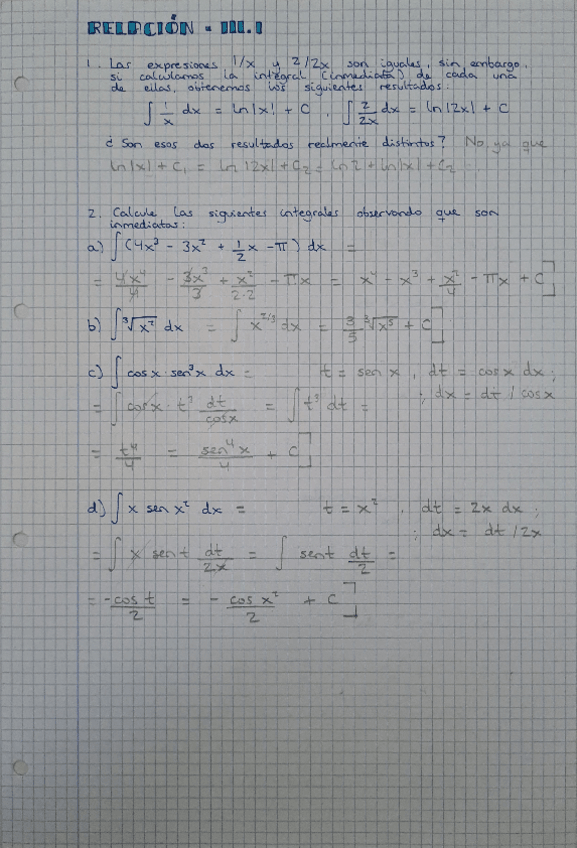 RELACIÓN - III.1
1. Las expresiones 1/x y 2/2x son iguales, sin embargo,
si calculamos la integral (inmediata) de cada una
de ellas, obtenemos los siguientes resultados:
∫ 1/x dx = ln|x| + C , ∫ 2/2x dx = ln|2x| + C
¿ Son esos dos resultados realmente distintos? No, ya que
ln|x| + C₁ = ln |2x| + C₂ = ln 2 + ln|x| + C₂
2. Calcule las siguientes integrales observando que son
inmediatas:
a) ∫ (4x³ - 3x² + 1/2 x - π) dx =
= 4x⁴/4 - 3x³/3 + x²/2·2 - πx = x⁴ - x³ + x²/4 - πx + C]
b) ∫ ³√x² dx = ∫ x^2/3 dx = 3/5 ³√x⁵ + C]
c) ∫ cosx · sen³x dx = t = sen x , dt = cosx dx ;
= ∫ cosx · t³ dt/cosx = ∫ t³ dt = ; dx = dt / cosx
= t⁴/4 = sen⁴x/4 + C]
d) ∫ x sen x² dx = t = x² , dt = 2x dx ;
; dx = dt / 2x
= ∫ x sen t dt/2x = ∫ sen t dt/2 =
= -cos t/2 = - cos x²/2 + C]